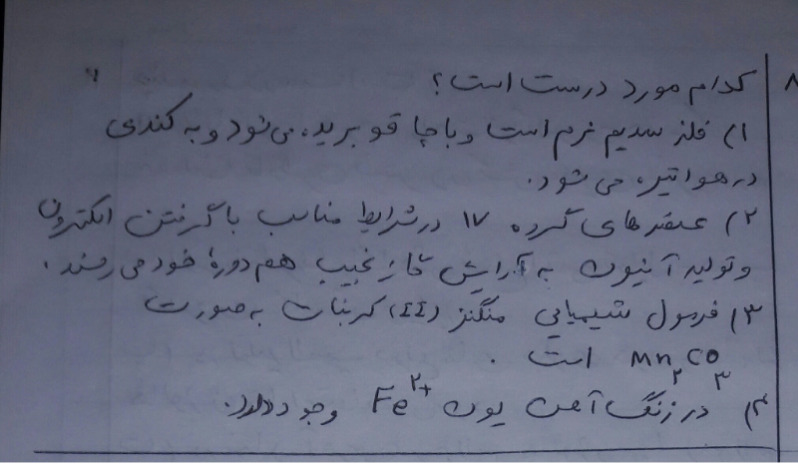 ۸ کدام مورد درست است؟
۱) فلز سدیم نرم است و با چاقو بریده می‌شود و به کندی
در هوا تیره می‌شود.
۲) عنصرهای گروه ۱۷ در شرایط مناسب با گرفتن الکترون
و تولید آنیون به آرایش گاز نجیب هم دورهٔ خود می‌رسند.
۳) فرمول شیمیایی منگنز (II) کربنات به صورت
Mn₂CO₃ است.
۴) در زنگ آهن یون Fe²⁺ وجود دارد.